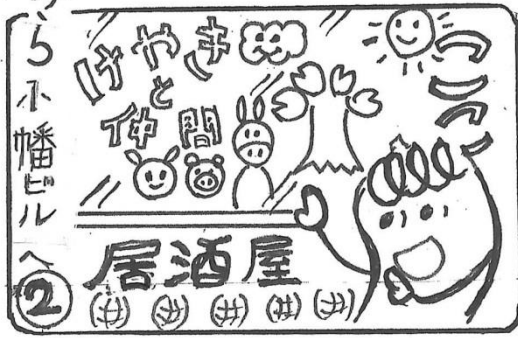 ら小幡ビルへ
②
けやき
と
仲間
居酒屋